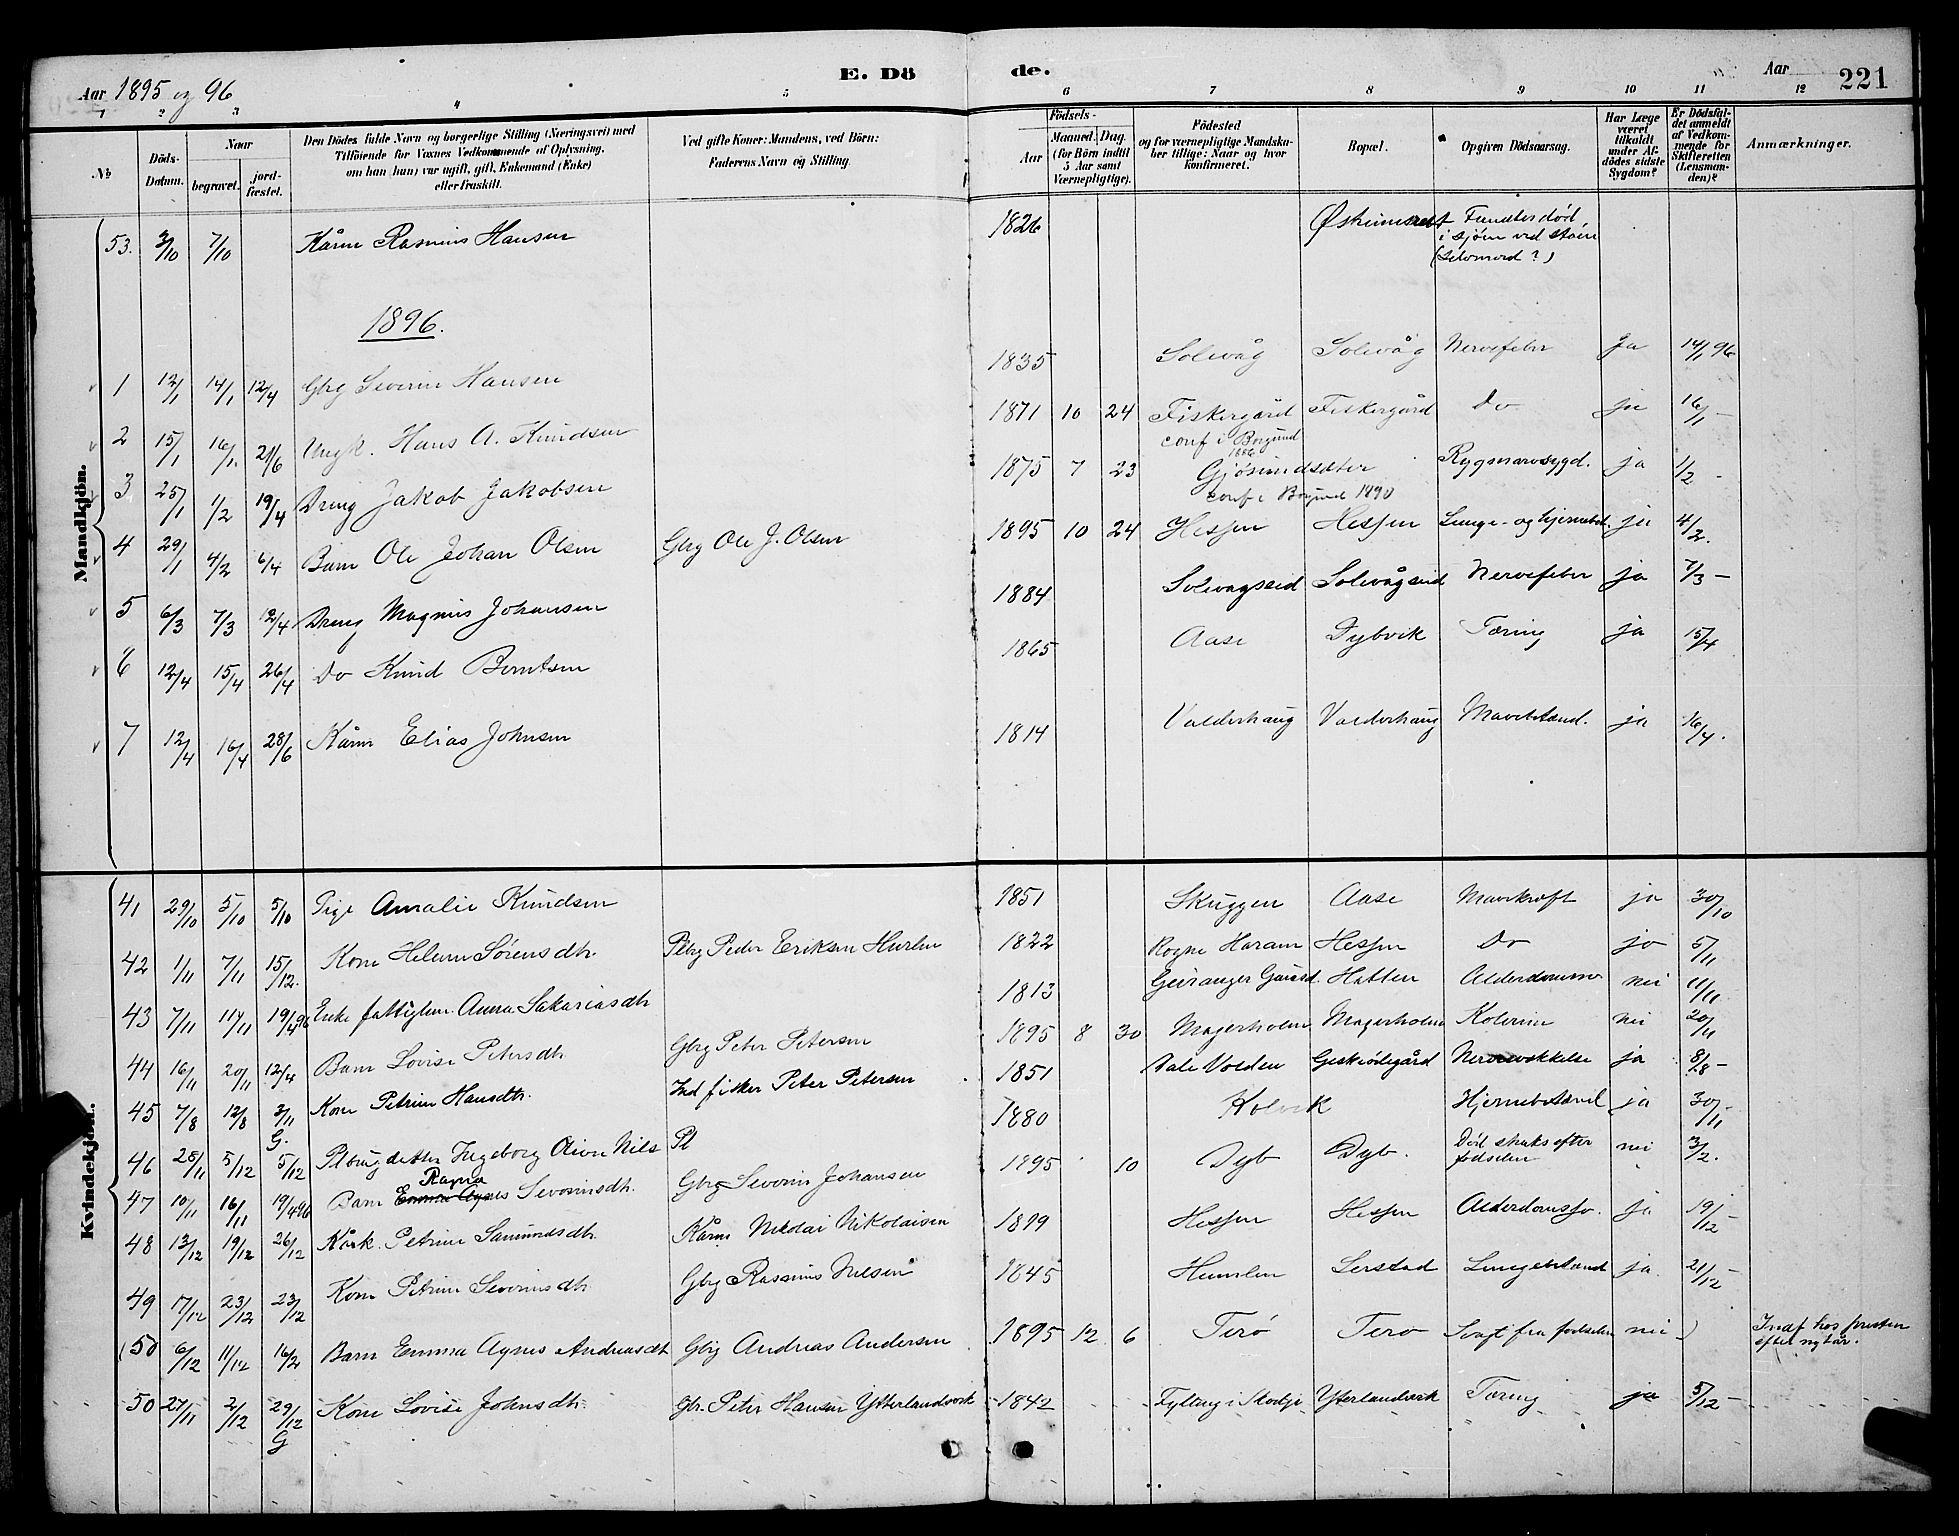 Aar 1895 og 96 E. Dö de. Aar 221
1 2 3 4 5 6 7 8 9 10 11 12
No
Döds-Datum.
Naar
begravet.
jord-fæstet.
Den Dödes fulde Navn og borgerlige Stilling (Næringsvei) med
Tilföiende for Voxnes Vedkommende af Oplysning,
om han (hun) var ugift, gift, Enkemand (Enke)
eller fraskilt.
Ved gifte Koner: Mandens, ved Börn:
Faderens Navn og Stilling.
Födsels-
Aar
Maaned. Dag.
(for Börn indtil
5 Aar samt
Værnepligtige).
Födested
og for værnepligtige Mandska-
ber tillige: Naar og hvor
konfirmeret.
Bopæl.
Opgiven Dödsaarsag.
Har Læge
været
tilkaldt
under Af-
dödes sidste
Sygdom?
Er Dödsfal-
det anmeldt
af Vedkom-
mende for
Skifteretten
(Lensman-
den)?
Anmærkninger.
Mandkjön.
53. 3/10 7/10 Kårm Rasmus Hansen 1826 Funden død
i sjøen ved støen
(Selvmord?)
1896.
1 12/1 14/1 12/4 Gbrg Severin Hansen 1835 Solevåg Solevåg Nervefeber Ja 14/1 96
2 15/1 16/1 21/6 Ungk. Hans A. Knudsen 1871 10 24 Fiskergård Fiskergård Do ja 16/1 –
conf i Borgund
1886
3 25/1 1/2 19/4 Dreng Jakob Jakobsen 1875 7 23 Gjøsundsæter Rygmarvsygd. ja 1/2 -
conf i Borgund 1890
4 29/1 4/2 6/4 Barn Ole Johan Olsen Gbrg Ole J. Olsen 1895 10 24 Hessen Hessen Lunge- og hjernebet. ja 4/2.
5 6/3 7/3 12/4 Dreng Magnus Johansen 1884 Solevågseid Solevågseid Nervefeber ja 7/3 –
6 12/4 15/4 26/4 Do Knud Berntsen 1865 Aase Dybvik Tæring ja 15/4
7 12/4 16/4 28/6 Kårm Elias Johnsen 1814 Valderhaug Valderhaug Mavebetænd. ja 16/4.
Kvindekjön.
41 29/10 5/10 5/10 Pige Amalie Knudsen 1851 Skuggen Aase Mavekræft ja 30/10
42 1/11 7/11 15/12. Kone Helene Sørensdtr. Plbrg Peder Eriksen 1822 Rogne Haram Hessen Do ja 5/11
43 7/11 14/11 19/4 96 Enke fattiglem. Anna Sakariasdtr 1813 Geiranger Hatlen Alderdomssv nei 11/11.
44 16/11 20/11 12/4 Barn Lovise Petersdtr Gbrg Peter Petersen 1895 8 30 Magerholm Magerholm Kolerine nei 20/11
45 7/8 12/8 3/11 Kone Petrine Hansdtr. Ind fisker Peter Petersen 1851 Dale Volden Geskiødegård Nervesvækkelse ja 8/8 –
46 25/11 5/12 G. 5/12 Plbrugdatter Ingeborg Oline Nils Pl 1880 Kolvik Hjernebetænd ja 30/11 –
47 10/11 16/11 19/4 96 Barn Ragna Emma Agnes Severinsdtr. Gbrg Severin Johansen 1895 10 Dyb Dyb. Död straks efter
fødselen nei 3/2.
48 13/12 19/12 26/12 Kårk. Petrine Samundsdtr. Kårm Nikolai Nikolaisen 1819 Hessen Hessen Alderdomssv. ja 19/12 –
49 17/12 23/12 23/12 Kone Petrine Severinsdtr. Gbrg Rasmus Nilsen 1845 Humlen Serstad Lungebetænd ja. 21/12 –
(50 6/12 11/12 16/2 Barn Emma Agnes Andreasdtr Gbrg Andreas Andersen 1895 12 6 Terø Terø Svagt fra fødselen nei ) Indf hos presten
efter nytår.
50 27/11 2/12 29/12 G Kone Lovise Johnsdtr. Gbr. Peter Hansen Ytterlandverk 1842 Fylling i Skodje Ytterlandverk Tæring ja 5/12 –